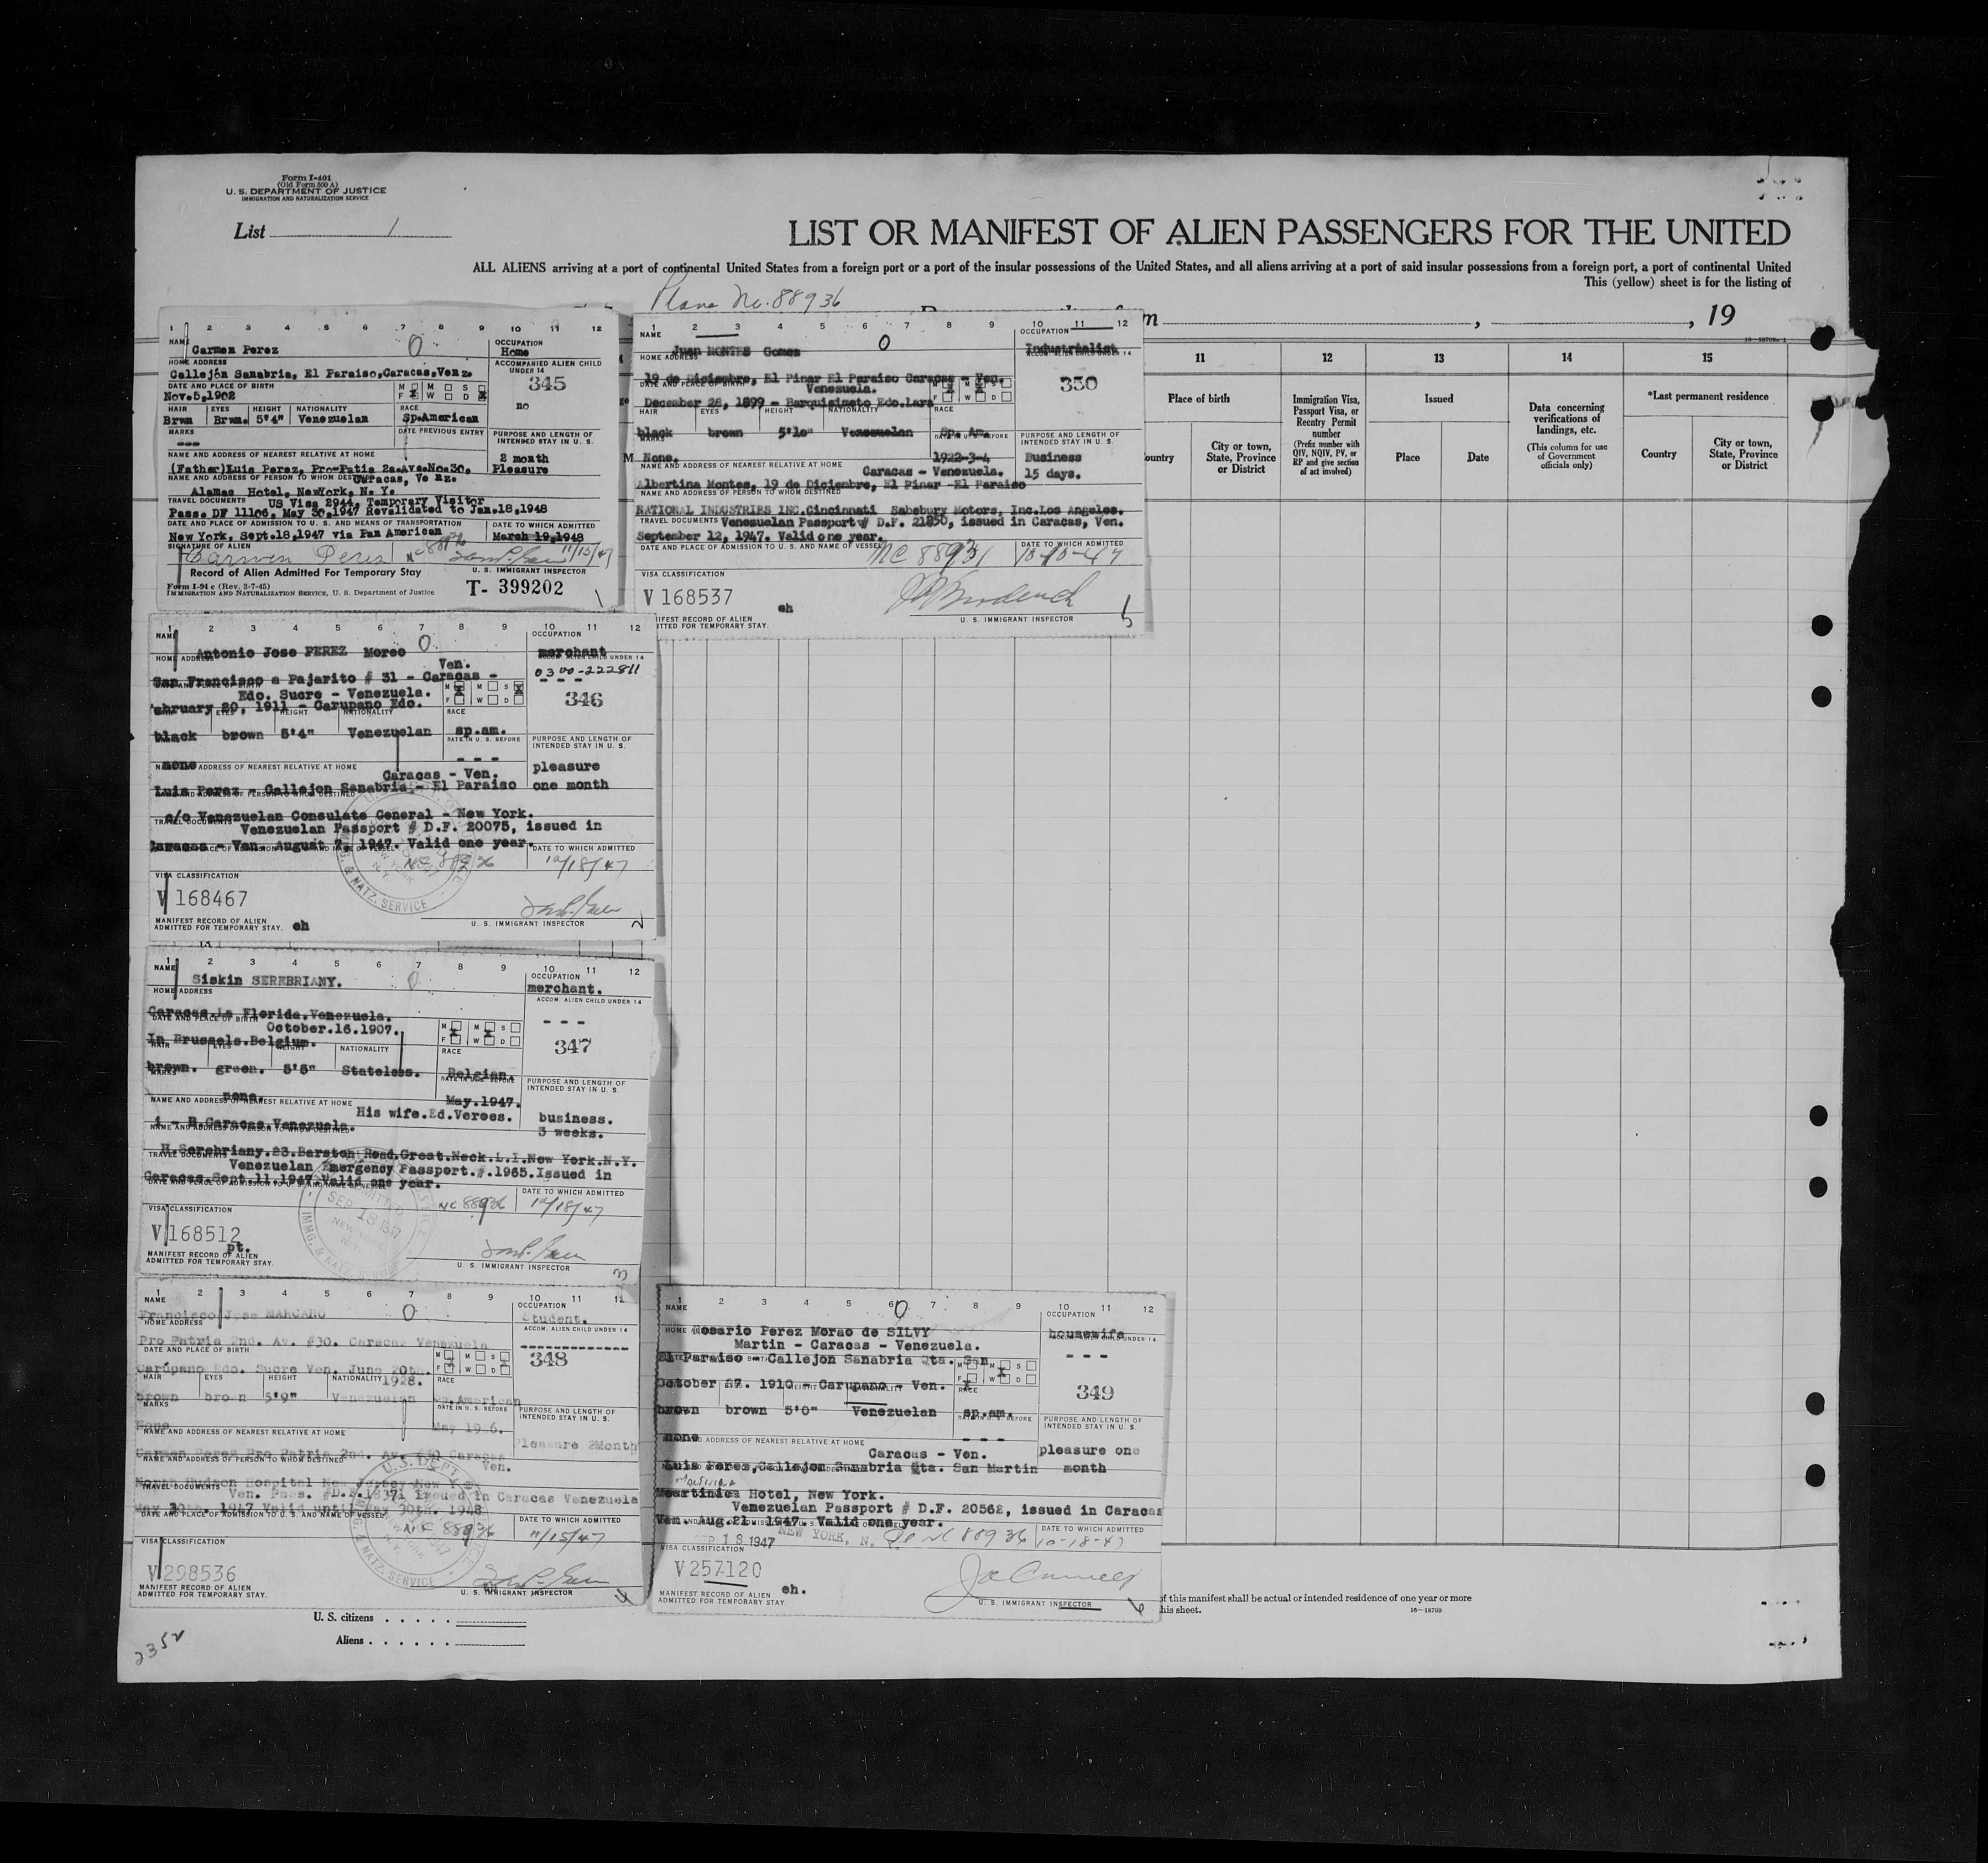 Form I-401
(Old Form 500 A)
U. S. DEPARTMENT OF JUSTICE
IMMIGRATION AND NATURALIZATION SERVICE
List 1
LIST OR MANIFEST OF ALIEN PASSENGERS FOR THE UNITED
ALL ALIENS arriving at a port of continental United States from a foreign port or a port of the insular possessions of the United States, and all aliens arriving at a port of said insular possessions from a foreign port, a port of continental United
This (yellow) sheet is for the listing of
Plane No. 88936
, 19
1 2 3 4 5 6 7 8 9 10 11 12
NAME
Carmen Perez
0
OCCUPATION
Home
HOME ADDRESS
Callejón Sanabria, El Paraiso,Caracas,Venz.
ACCOMPANIED ALIEN CHILD
UNDER 14
345
no
DATE AND PLACE OF BIRTH
Nov.5,1902
M M S
F W D
HAIR EYES HEIGHT NATIONALITY RACE
Brwn Brwn. 5'4" Venezuelan Sp.American
MARKS DATE PREVIOUS ENTRY
---
PURPOSE AND LENGTH OF
INTENDED STAY IN U. S.
2 month
Pleasure
NAME AND ADDRESS OF NEAREST RELATIVE AT HOME
(Father)Luis Perez, Pro-Patia 2a.Ave.No.30.
NAME AND ADDRESS OF PERSON TO WHOM DESTINED
Caracas, Ve nz.
Alamac Hotel, NewYork, N. Y.
TRAVEL DOCUMENTS US Visa 2944, Temporary Visitor
Pass. DF 11106, May 30,1947 Revalidated to Jan.18,1948
DATE AND PLACE OF ADMISSION TO U. S. AND MEANS OF TRANSPORTATION
New York, Sept.18,1947 via Pan American
DATE TO WHICH ADMITTED
March 19,1948
11/15/47
SIGNATURE OF ALIEN
Carmen Perez
Record of Alien Admitted For Temporary Stay
U. S. IMMIGRANT INSPECTOR
Form I-94 c (Rev. 3-7-45)
IMMIGRATION AND NATURALIZATION SERVICE, U. S. Department of Justice
T- 399202
1
1 2 3 4 5 6 7 8 9 10 11 12
NAME
Juan MONTES Gomes
0
OCCUPATION
Industrialist
HOME ADDRESS
ACCOM. ALIEN CHILD UNDER 14
19 de Diciembre, El Pinar El Paraiso Caracas - Ven.
350
Venezuela.
December 28, 1899 - Barquisimeto Edo.Lara
HAIR EYES HEIGHT NATIONALITY RACE
black brown 5'10" Venezuelan Sp. Am.
PURPOSE AND LENGTH OF
INTENDED STAY IN U. S.
None. 1922-3-4 Business
15 days.
NAME AND ADDRESS OF NEAREST RELATIVE AT HOME
Caracas - Venezuela.
Albertina Montes, 19 de Diciembre, El Pinar -El Paraiso
NAME AND ADDRESS OF PERSON TO WHOM DESTINED
NATIONAL INDUSTRIES INC.Cincinnati Sabsbury Motors, Inc.Los Angeles.
TRAVEL DOCUMENTS Venezuelan Passport # D.F. 21850, issued in Caracas, Ven.
September 12, 1947. Valid one year.
DATE AND PLACE OF ADMISSION TO U. S. AND NAME OF VESSEL
DATE TO WHICH ADMITTED
10-10-47
VISA CLASSIFICATION
V 168537
eh
MANIFEST RECORD OF ALIEN
ADMITTED FOR TEMPORARY STAY.
U. S. IMMIGRANT INSPECTOR
5
11 12 13 14 15
Place of birth
Immigration Visa,
Passport Visa, or
Reentry Permit
number
(Prefix number with
QIV, NQIV, PV, or
RP and give section
of act involved)
Issued
Data concerning
verifications of
landings, etc.
(This column for use
of Government
officials only)
*Last permanent residence
Country
City or town,
State, Province
or District
Place
Date
Country
City or town,
State, Province
or District
1 2 3 4 5 6 7 8 9 10 11 12
NAME
Antonio Jose PEREZ Morao
0
OCCUPATION
merchant
HOME ADDRESS
0300-222811
Ven.
San Francisco a Pajarito # 31 - Caracas -
Edo. Sucre - Venezuela.
346
February 20, 1911 - Carupano Edo.
EYES HEIGHT NATIONALITY RACE
black brown 5'4" Venezuelan sp.am.
DATE IN U. S. BEFORE
PURPOSE AND LENGTH OF
INTENDED STAY IN U. S.
none
---
NAME AND ADDRESS OF NEAREST RELATIVE AT HOME
Caracas - Ven. pleasure
Luis Perez - Callejon Sanabria - El Paraiso one month
c/o Venezuelan Consulate General - New York.
TRAVEL DOCUMENTS
Venezuelan Passport # D.F. 20075, issued in
Caracas - Ven. August 7, 1947. Valid one year.
DATE TO WHICH ADMITTED
NC 88936 10/18/47
VISA CLASSIFICATION
V 168467
MANIFEST RECORD OF ALIEN
ADMITTED FOR TEMPORARY STAY. eh
U. S. IMMIGRANT INSPECTOR
2
1 2 3 4 5 6 7 8 9 10 11 12
NAME
Siskin SEREBRIANY.
0
OCCUPATION
merchant.
HOME ADDRESS
ACCOM. ALIEN CHILD UNDER 14
Caracas.La Florida.Venezuela.
DATE AND PLACE OF BIRTH
October.16.1907.
---
In Brussels.Belgium.
347
NATIONALITY RACE
brown. green. 5'5" Stateless. Belgian.
MARKS
PURPOSE AND LENGTH OF
INTENDED STAY IN U. S.
none. May.1947.
NAME AND ADDRESS OF NEAREST RELATIVE AT HOME
His wife.Ed.Veroes. business.
Caracas.Venezuela. 3 weeks.
H.Serebriany.23.Barston Road.Great.Neck.L.I.New York.N.Y.
TRAVEL DOCUMENTS
Venezuelan Emergency Passport.#.1965.Issued in
Caracas.Sept.11.1947.Valid one year.
DATE TO WHICH ADMITTED
NC 88936 10/18/47
ADMITTED
SEP 18 1947
NEW YORK
N.Y.
IMMG. & NATZ. SERVICE
VISA CLASSIFICATION
V 168512
pt.
MANIFEST RECORD OF ALIEN
ADMITTED FOR TEMPORARY STAY.
U. S. IMMIGRANT INSPECTOR
3
1 2 3 4 5 6 7 8 9 10 11 12
NAME
Francisco Jose MARCANO
0
OCCUPATION
Student.
HOME ADDRESS
ACCOM. ALIEN CHILD UNDER 14
Pro Patria 2nd. Av. #30. Caracas Venezuela
DATE AND PLACE OF BIRTH
348
Carúpano Edo. Sucre Ven. June 20th.
1928.
HAIR EYES HEIGHT NATIONALITY RACE
brown brown 5'9" Venezuelan Sp.American
MARKS
DATE IN U. S. BEFORE
PURPOSE AND LENGTH OF
INTENDED STAY IN U. S.
None
NAME AND ADDRESS OF NEAREST RELATIVE AT HOME
Pleasure 2Month
Carmen Perez Pro Patria 2nd. Av. #30 Caracas
NAME AND ADDRESS OF PERSON TO WHOM DESTINED
Ven.
North Hudson Hospital New Jersey New York
TRAVEL DOCUMENTS
Ven. Pass. issued in Caracas Venezuela
May 30th. 1947 Valid until May 30th. 1948
DATE AND PLACE OF ADMISSION TO U. S. AND NAME OF VESSEL
DATE TO WHICH ADMITTED
NC 88936 11/15/47
VISA CLASSIFICATION
V 298536
MANIFEST RECORD OF ALIEN
ADMITTED FOR TEMPORARY STAY.
U. S. IMMIGRANT INSPECTOR
4
1 2 3 4 5 6 7 8 9 10 11 12
NAME
0
OCCUPATION
Rosario Perez Morao de SILVY
housewife
Martin - Caracas - Venezuela.
El Paraiso - Callejon Sanabria Qta. San
---
October 27. 1910 - Carupano - Ven.
349
brown brown 5'0" Venezuelan sp.am.
PURPOSE AND LENGTH OF
INTENDED STAY IN U. S.
none
---
NAME AND ADDRESS OF NEAREST RELATIVE AT HOME
Caracas - Ven. pleasure one
Luis Perez,Callejon Sanabria Qta. San Martin month
Hotel, New York.
Venezuelan Passport # D.F. 20562, issued in Caracas
Ven. Aug.21. 1947. Valid one year.
SEP 18 1947 NEW YORK, N. Y.
NC 88936
DATE TO WHICH ADMITTED
10-18-47
VISA CLASSIFICATION
V 257120
MANIFEST RECORD OF ALIEN
ADMITTED FOR TEMPORARY STAY.
eh.
U. S. IMMIGRANT INSPECTOR
6
of this manifest shall be actual or intended residence of one year or more
this sheet.
16—18709
U. S. citizens
Aliens
2352